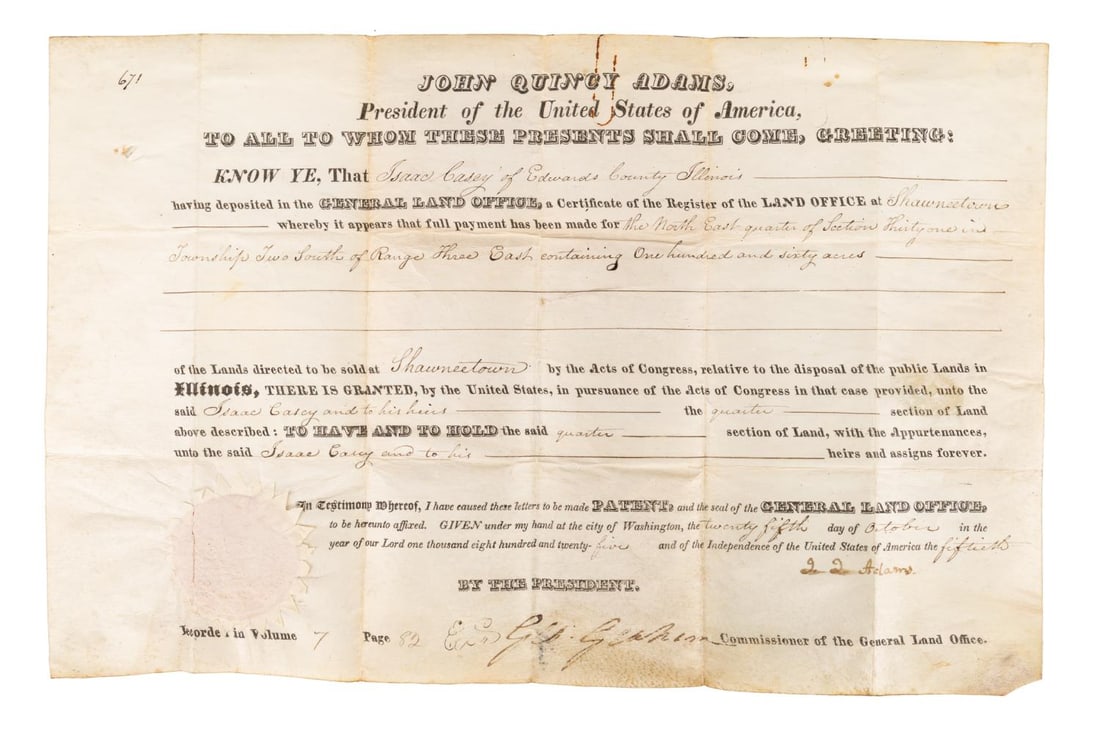 671
JOHN QUINCY ADAMS,
President of the United States of America,
TO ALL TO WHOM THESE PRESENTS SHALL COME, GREETING:
KNOW YE, That Isaac Casey of Edwards County Illinois
having deposited in the GENERAL LAND OFFICE, a Certificate of the Register of the LAND OFFICE at Shawneetown
whereby it appears that full payment has been made for the North East quarter of Section Thirty one in
Township Two South of Range Three East containing One hundred and sixty acres
of the Lands directed to be sold at Shawneetown by the Acts of Congress, relative to the disposal of the public Lands in
Illinois, THERE IS GRANTED, by the United States, in pursuance of the Acts of Congress in that case provided, unto the
said Isaac Casey and to his heirs the quarter section of Land
above described: TO HAVE AND TO HOLD the said quarter section of Land, with the Appurtenances,
unto the said Isaac Casey and to his heirs and assigns forever.
In Testimony Whereof, I have caused these letters to be made PATENT, and the seal of the GENERAL LAND OFFICE,
to be hereunto affixed. GIVEN under my hand at the city of Washington, the twenty fifth day of October in the
year of our Lord one thousand eight hundred and twenty-five and of the Independence of the United States of America the fiftieth
J Q Adams
BY THE PRESIDENT.
Recorded in Volume 7 Page 82 Exd Geo: Graham Commissioner of the General Land Office.